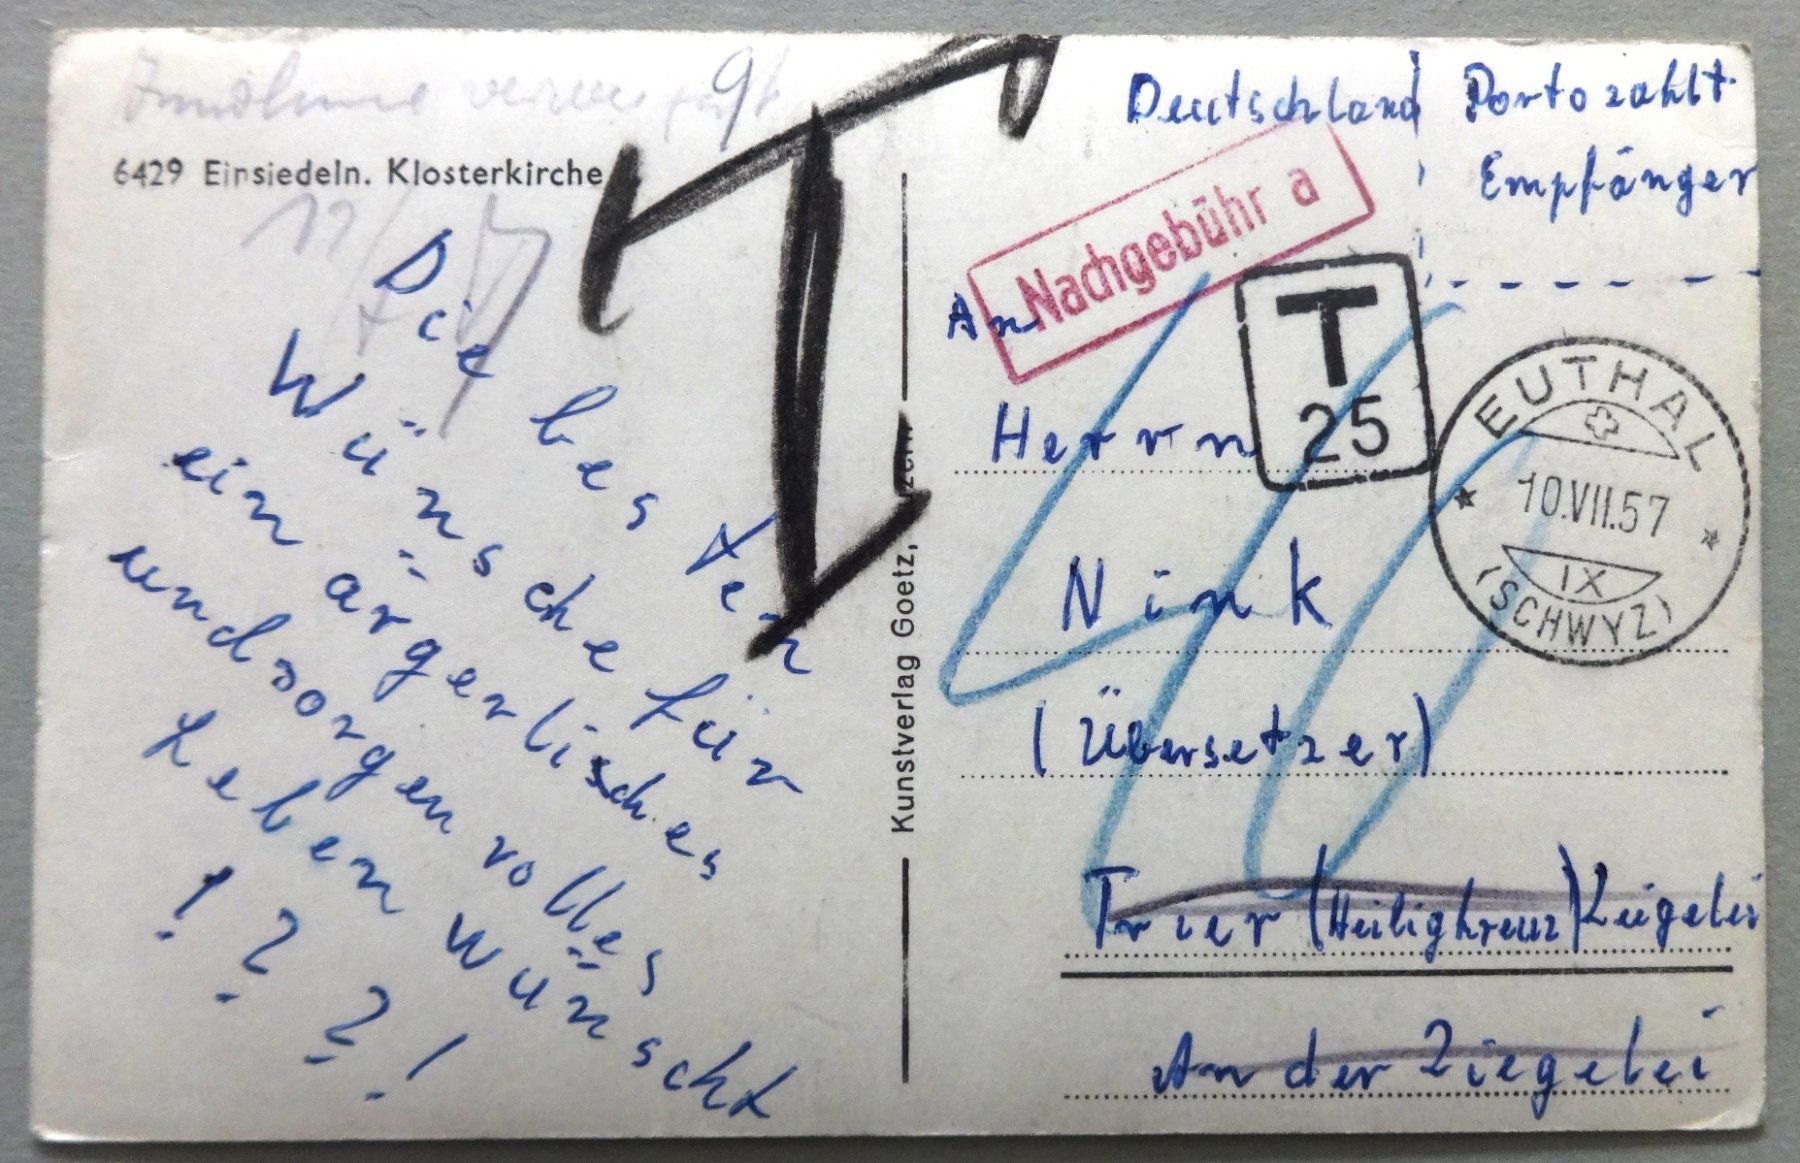 6429 Einsiedeln. Klosterkirche
Die besten
Wünsche für
ein ärgerlisches
und sorgenvolles
Leben wünscht
! ? ? !
Kunstverlag Goetz,
Deutschland
Porto zahlt
Empfänger
Nachgebühr a
An
T
25
Herrn
EUTHAL
10.VII.57
IX
(SCHWYZ)
Nink
(Übersetzer)
Trier (Heiligkreuz)
An der Ziegelei
T
40